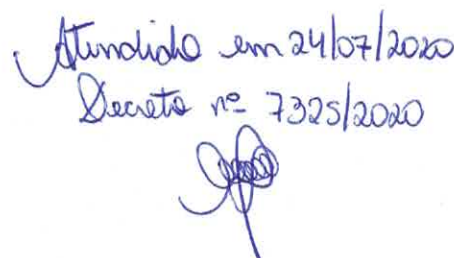 Atendido em 24/07/2020
Decreto nº 7325/2020